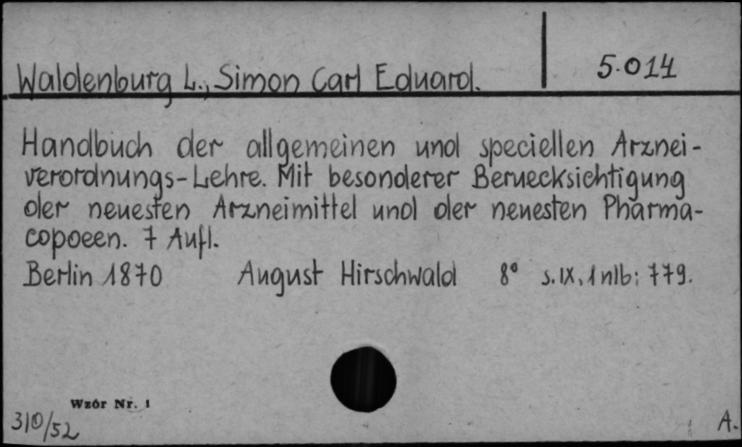 Waldenburg L., Simon Carl Eduard.
5.014
Handbuch der allgemeinen und speciellen Arznei-
verordnungs-Lehre. Mit besonderer Beruecksichtigung
der neuesten Arzneimittel und der neuesten Pharma-
copoeen. 7 Aufl.
Berlin 1870 August Hirschwald 8° s.IX, 1 nlb; 779.
Wzór Nr. 1
310/52
A.